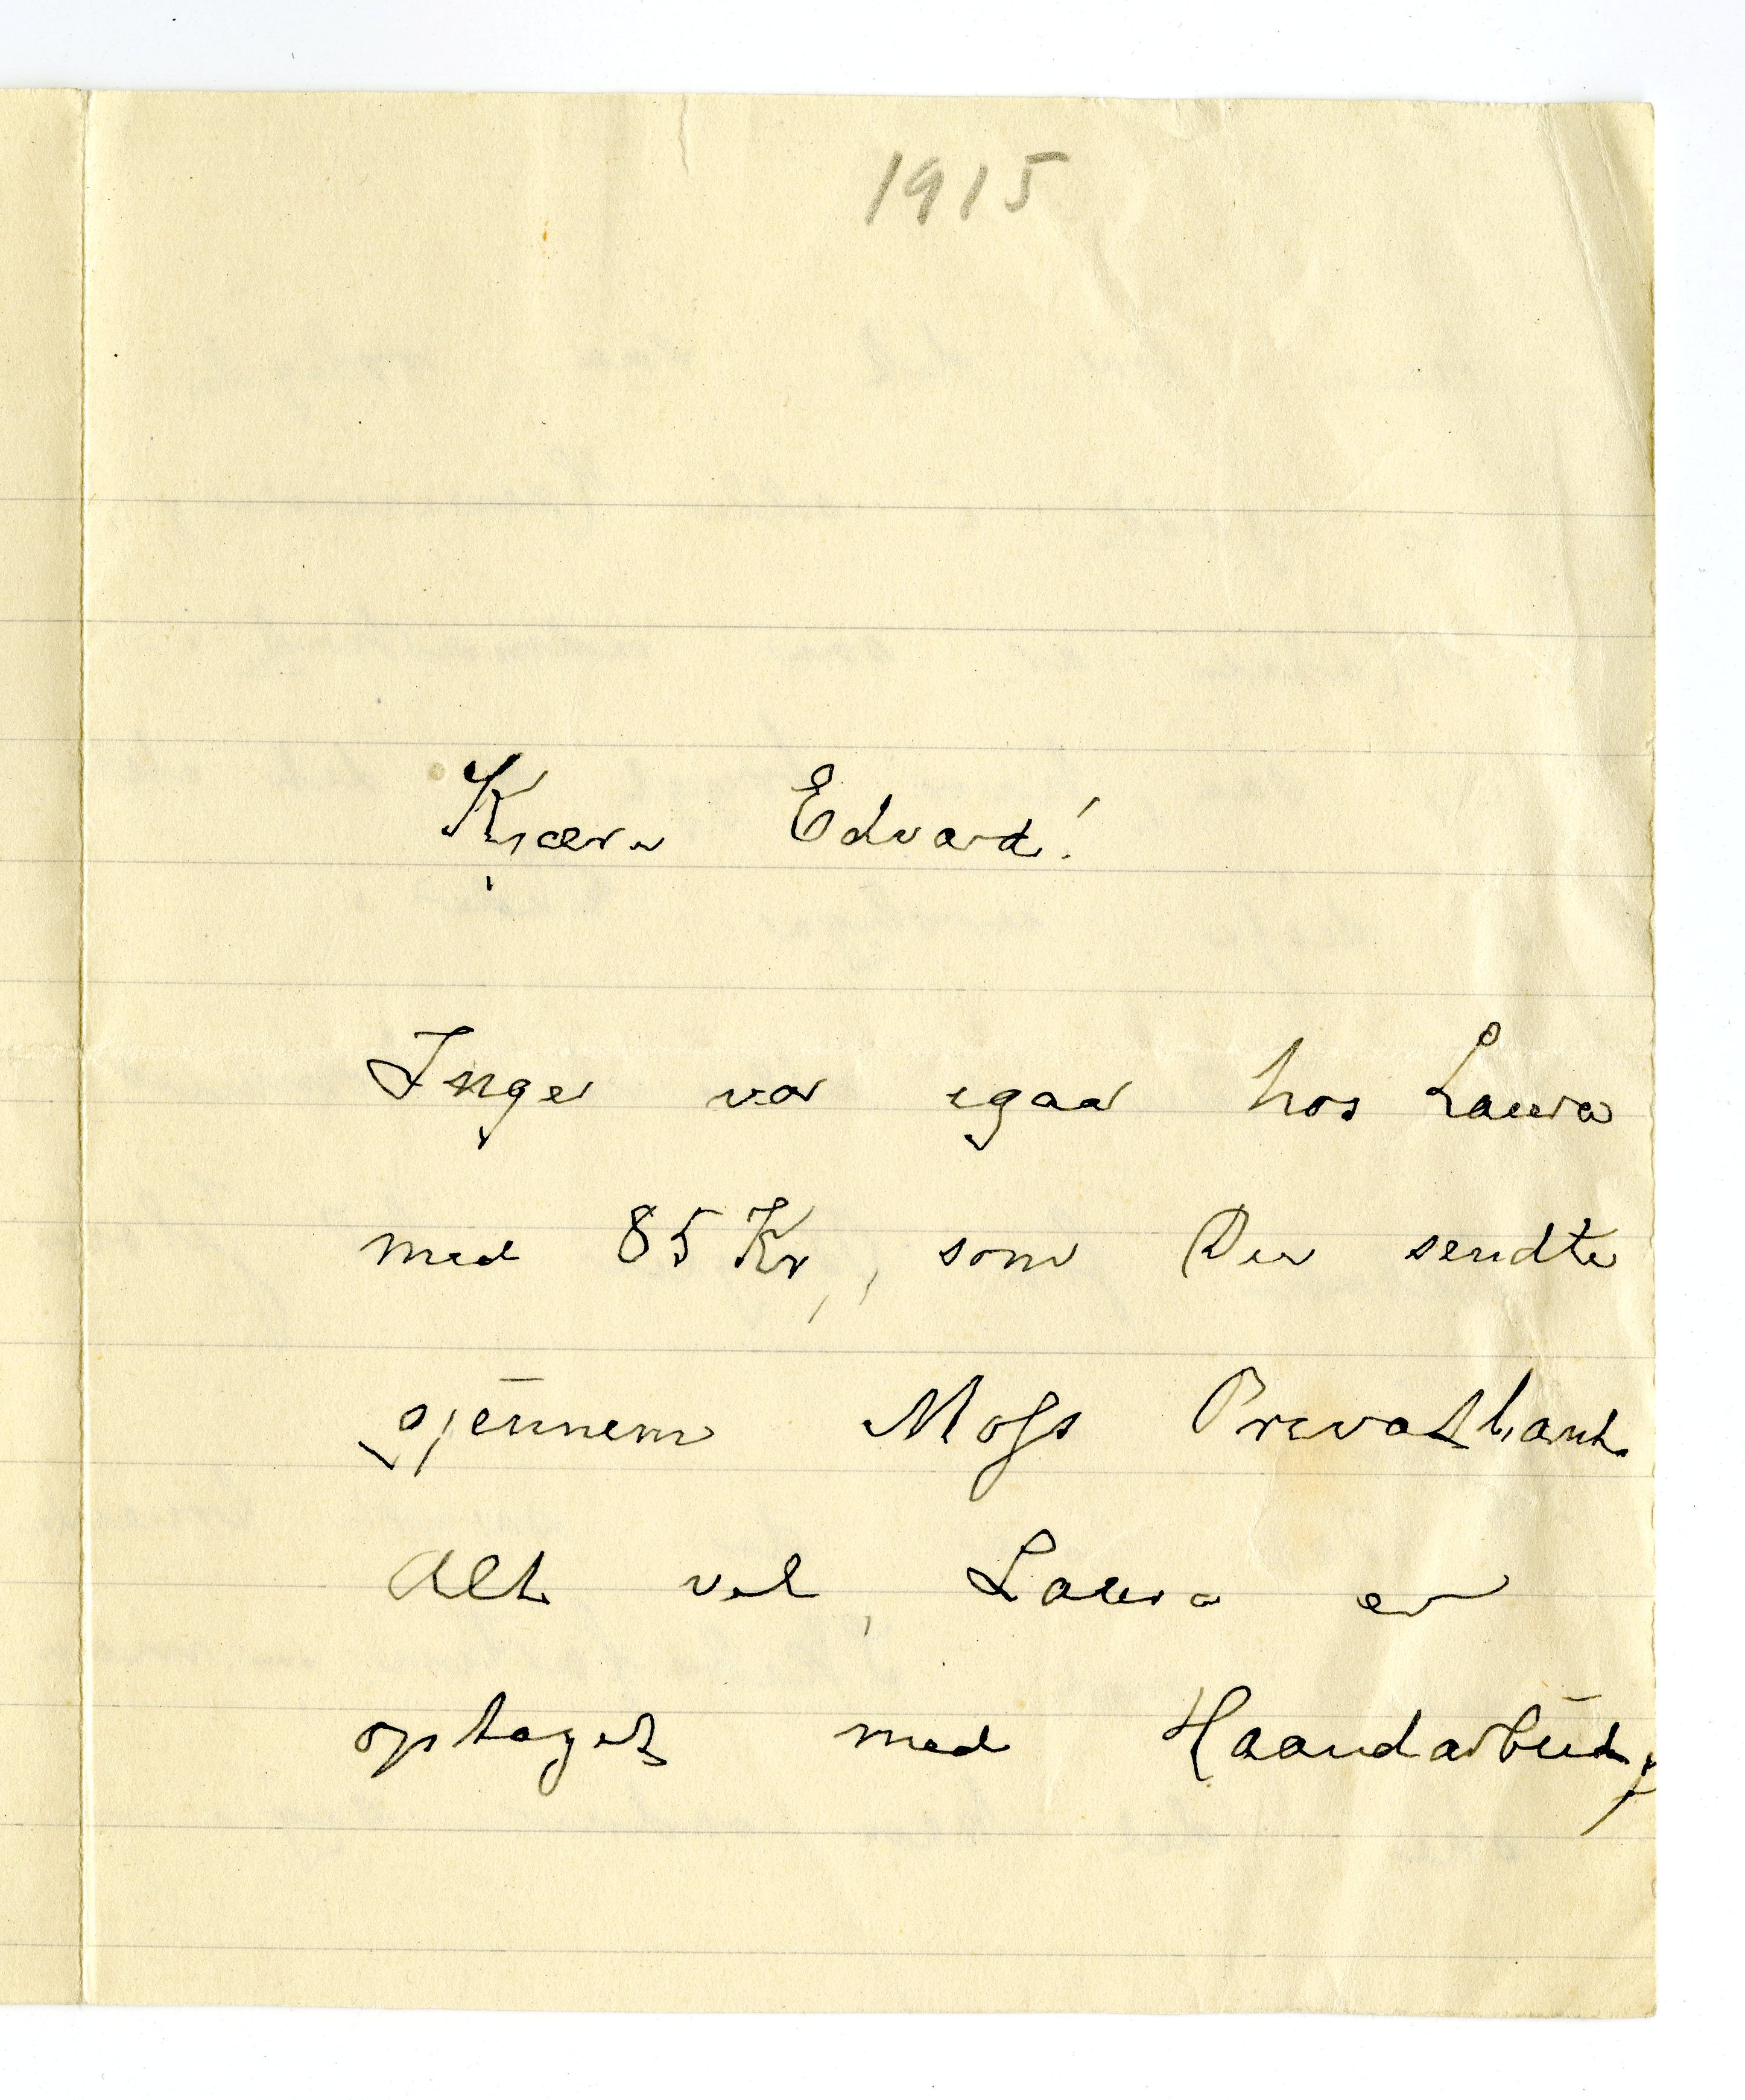 1915
Kjære Edvard!
Inger var igaar hos Laura
med 85 Kr, som Du sendte
gjennem Moss Privatbank
Alt vel, Laura er
optaget med Haandarbeid,